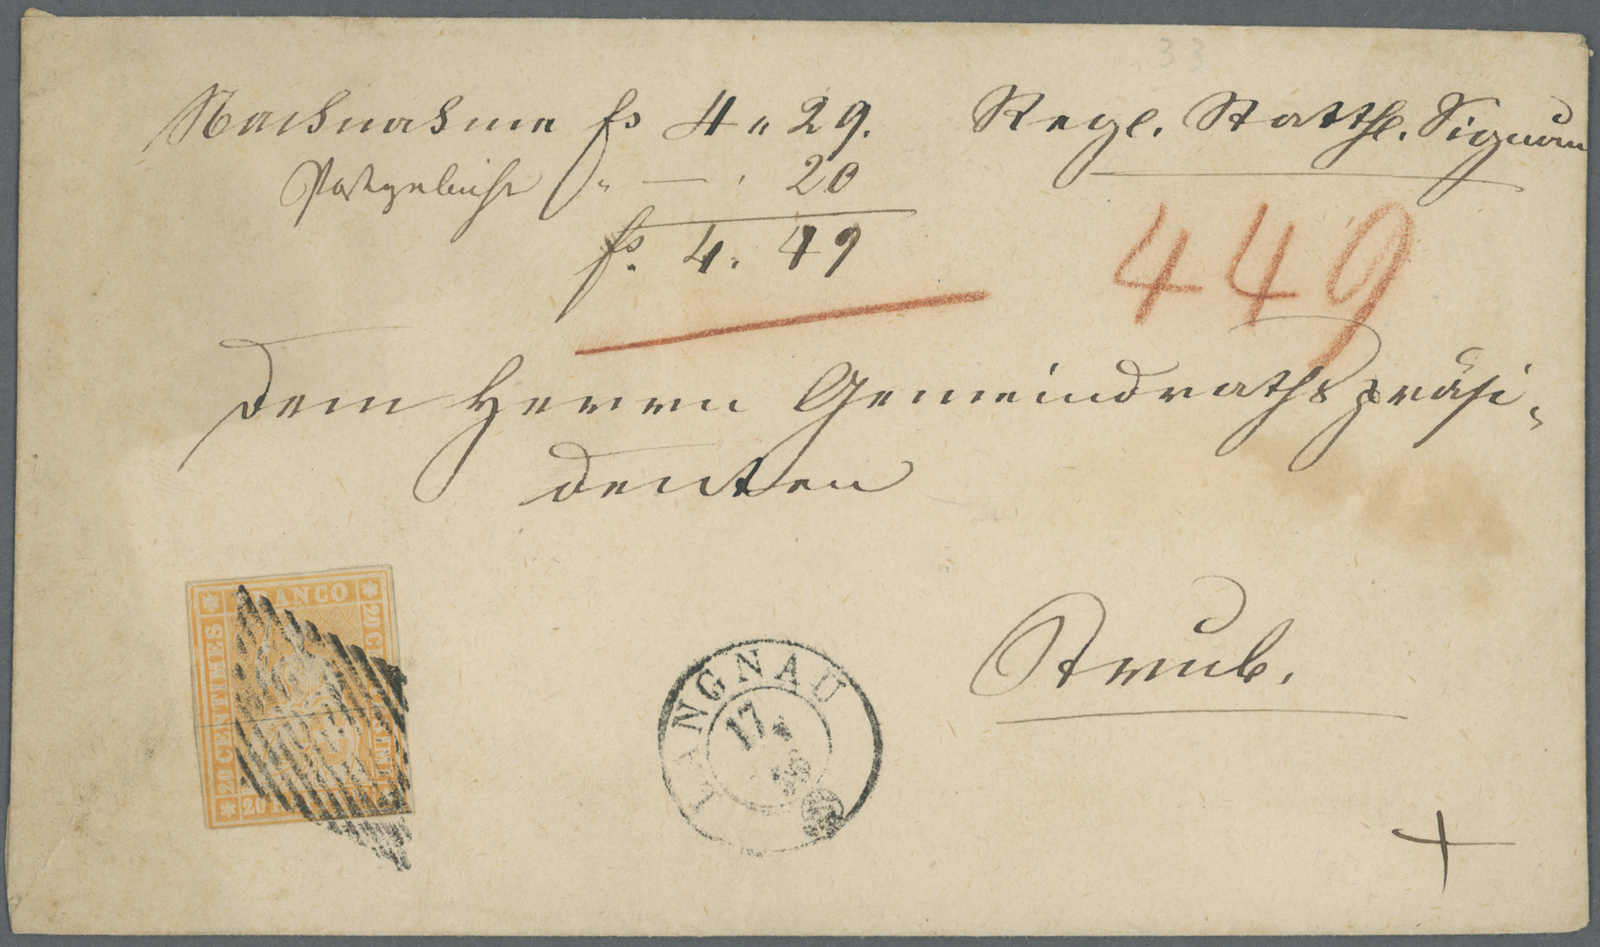 33
Nachnahme fr 4 „ 29. Regl. Statth. Signau
Postgebühr „ — . 20
fr. 4. 49
449
Dem Herrn Gemeindrathspräsi-
denten
Strub.
FRANCO
20 CENTIMES
LANGNAU
17